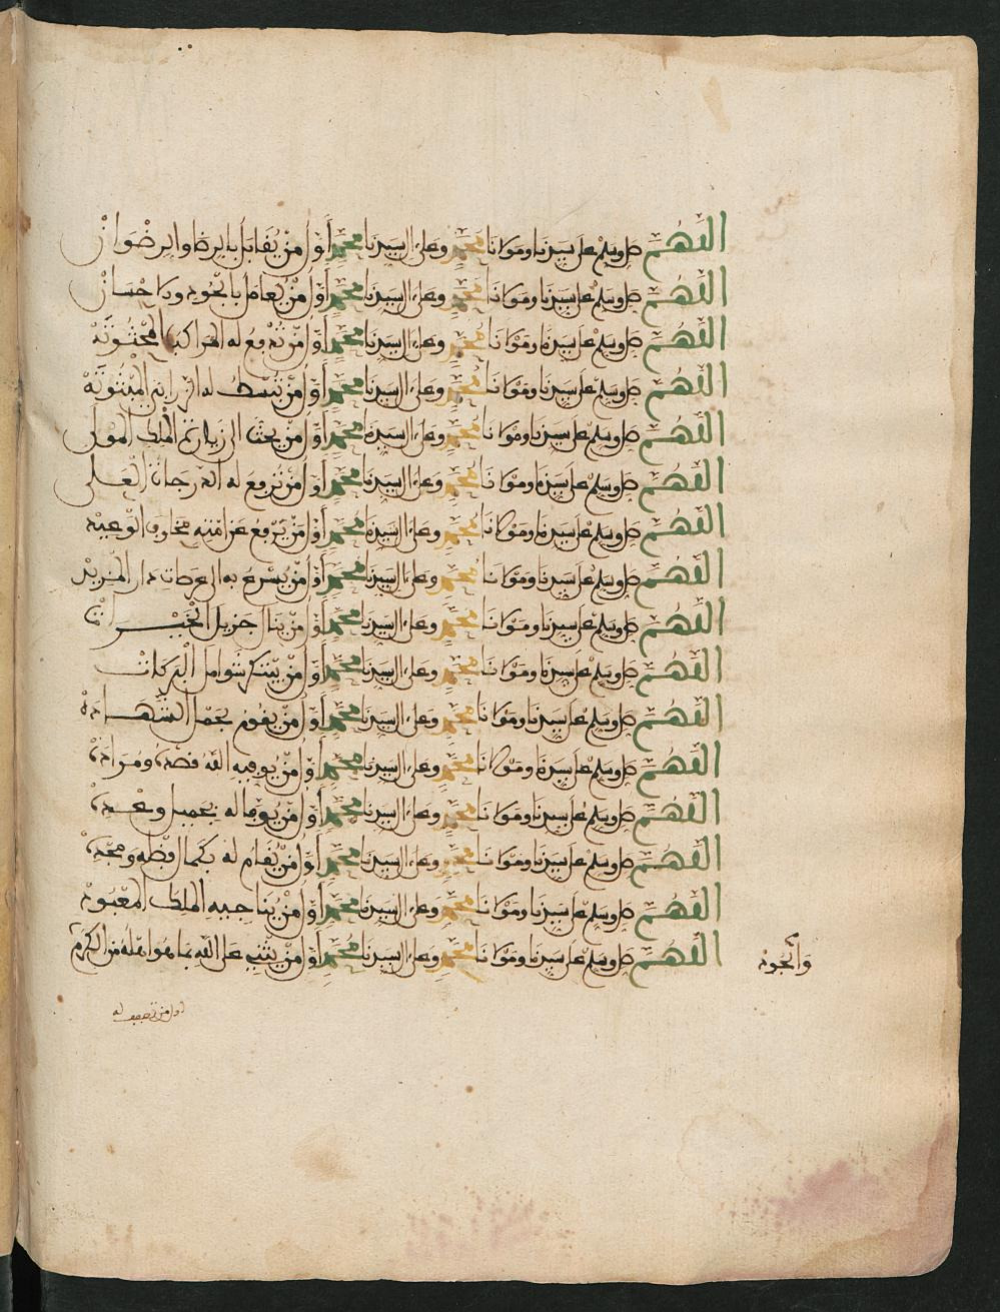 اللهم صل وسلم على سيدنا ومولانا محمد وعلى ال سيدنا محمد أول من يقابل بالرضا والرضوان
اللهم صل وسلم على سيدنا ومولانا محمد وعلى ال سيدنا محمد أول من يعامل بالجود والاحسان
اللهم صل وسلم على سيدنا ومولانا محمد وعلى ال سيدنا محمد أول من ترفع له المراكب المحثوثة
اللهم صل وسلم على سيدنا ومولانا محمد وعلى ال سيدنا محمد أول من تبسط له الزرابي المبثوثة
اللهم صل وسلم على سيدنا ومولانا محمد وعلى ال سيدنا محمد أول من يحث الى زيارة الملك المولى
اللهم صل وسلم على سيدنا ومولانا محمد وعلى ال سيدنا محمد أول من ترفع له الدرجات العلى
اللهم صل وسلم على سيدنا ومولانا محمد وعلى ال سيدنا محمد أول من يرفع عن امته مخاوف الوعيد
اللهم صل وسلم على سيدنا ومولانا محمد وعلى ال سيدنا محمد أول من يسرع به الى عرصات دار المزيد
اللهم صل وسلم على سيدنا ومولانا محمد وعلى ال سيدنا محمد أول من ينال جزيل الخيرات
اللهم صل وسلم على سيدنا ومولانا محمد وعلى ال سيدنا محمد أول من شوامل البركات
اللهم صل وسلم على سيدنا ومولانا محمد وعلى ال سيدنا محمد أول من يفوز الشهادة
اللهم صل وسلم على سيدنا ومولانا محمد وعلى ال سيدنا محمد أول من يوفيه الله قصده ومراده
اللهم صل وسلم على سيدنا ومولانا محمد وعلى ال سيدنا محمد أول من له بجميل وعده
اللهم صل وسلم على سيدنا ومولانا محمد وعلى ال سيدنا محمد أول من له بكمال ومجده
اللهم صل وسلم على سيدنا ومولانا محمد وعلى ال سيدنا محمد أول من يناجيه الملك المعبود
اللهم صل وسلم على سيدنا ومولانا محمد وعلى ال سيدنا محمد أول من يثني على الله بما هو اهله من الكرم
والجود
اول من له